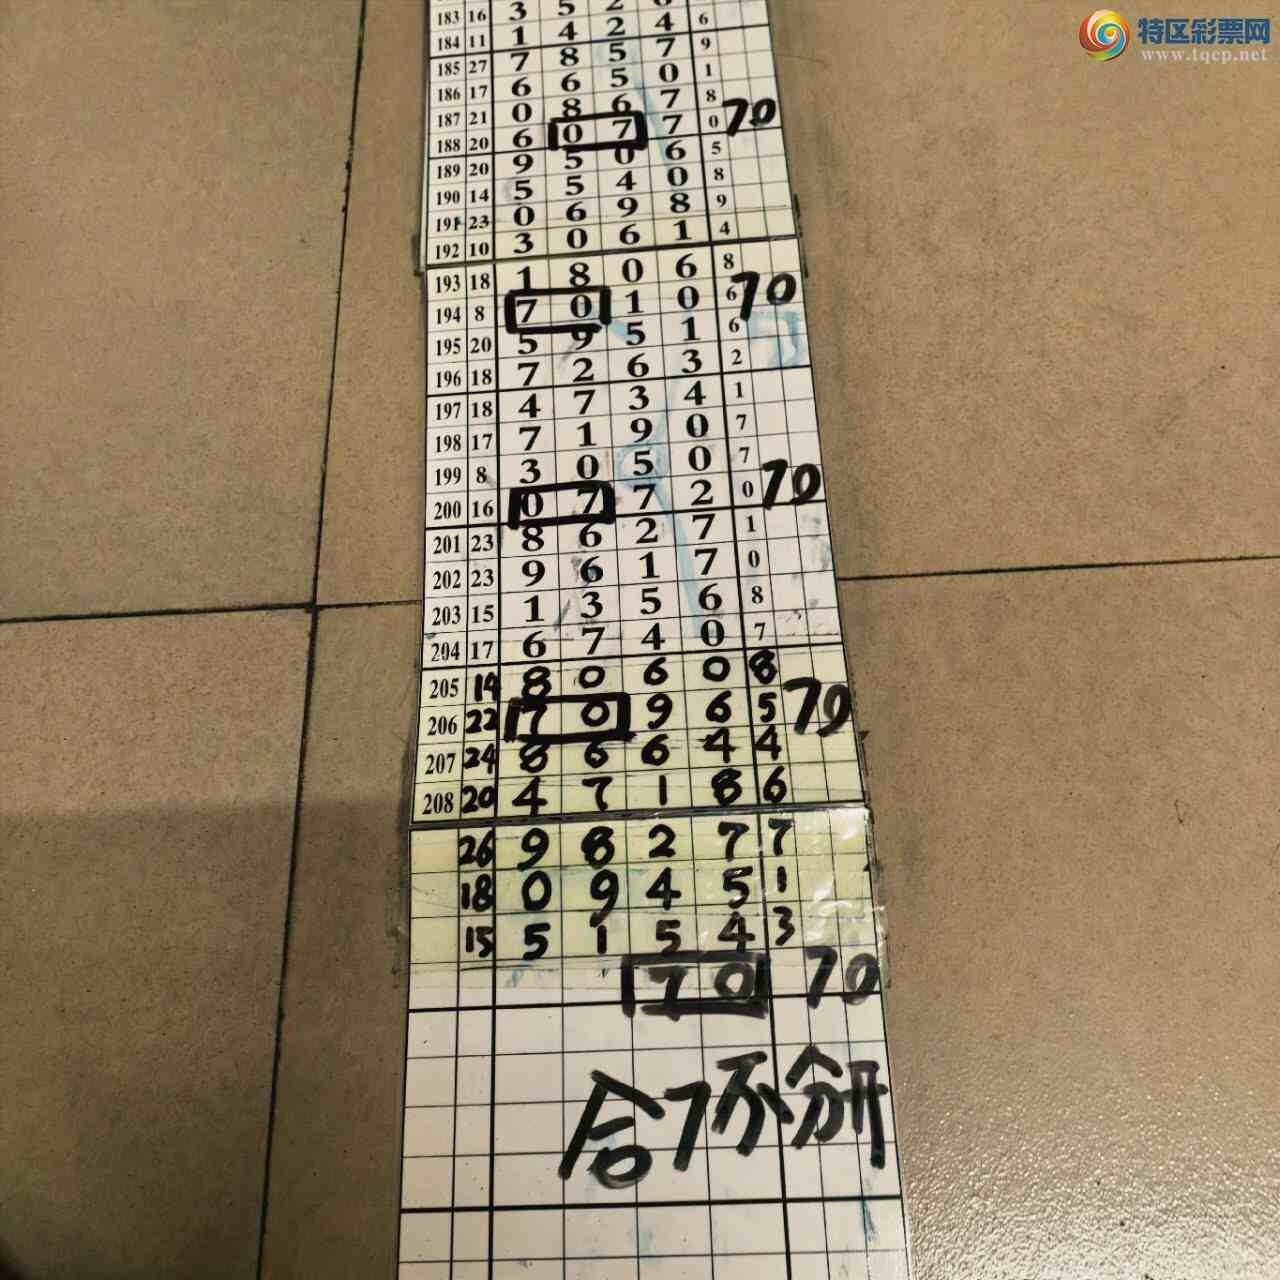 特区彩票网
www.tqcp.net
183 16 3 5 2 6
184 11 1 4 2 4 6
185 27 7 8 5 7 9
186 17 6 6 5 0 1
187 21 0 8 6 7 8
188 20 6 0 7 7 0 70
189 20 9 5 0 6 5
190 14 5 5 4 0 8
191 23 0 6 9 8 9
192 10 3 0 6 1 4
193 18 1 8 0 6 8
194 8 7 0 1 0 6 70
195 20 5 9 5 1 6
196 18 7 2 6 3 2
197 18 4 7 3 4 1
198 17 7 1 9 0 7
199 8 3 0 5 0 7
200 16 0 7 7 2 0 70
201 23 8 6 2 7 1
202 23 9 6 1 7 0
203 15 1 3 5 6 8
204 17 6 7 4 0 7
205 14 8 0 6 0 8
206 22 7 0 9 6 5 70
207 24 8 6 6 4 4
208 20 4 7 1 8 6
26 9 8 2 7 7
18 0 9 4 5 1
15 5 1 5 4 3
7 0 70
合7不分开